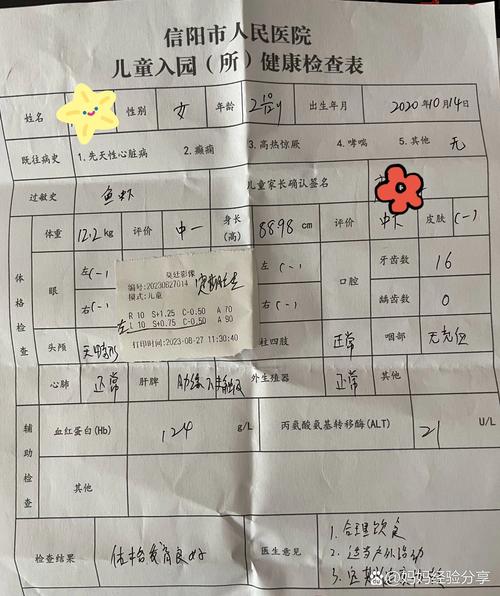 信阳市人民医院
儿童入园(所)健康检查表
姓名 性别 女 年龄 2 10/12y 出生年月 2020年10月14日
既往病史 1.先天性心脏病 2.癫痫 3.高热惊厥 4.哮喘 5.其他 无
过敏史 鱼虾 儿童家长确认签名
体格检查 体重 12.2kg 评价 中一 身长(高) 88.98 cm 评价 中下 皮肤 (-)
眼 左(-) 左(-) 口腔 牙齿数 16
右(-) 右(-) 龋齿数 0
莫廷影像
编号:20230827014
模式:儿童
R 10 S+1.25 C-0.50 A 70
左 L 10 S+0.75 C-0.50 A 90
打印时间:2023-08-27 11:30:40
头颅 无畸形 柱四肢 正常 咽部 无充血
心肺 正常 肝脾 肋缘下未触及 外生殖器 正常 其他
辅助检查 血红蛋白(Hb) 124 g/L 丙氨酸氨基转移酶(ALT) 21 U/L
其他
检查结果 体格发育良好 医生意见 1.合理饮食
2.适当户外活动
3.定期
百家号@妈妈经验分享